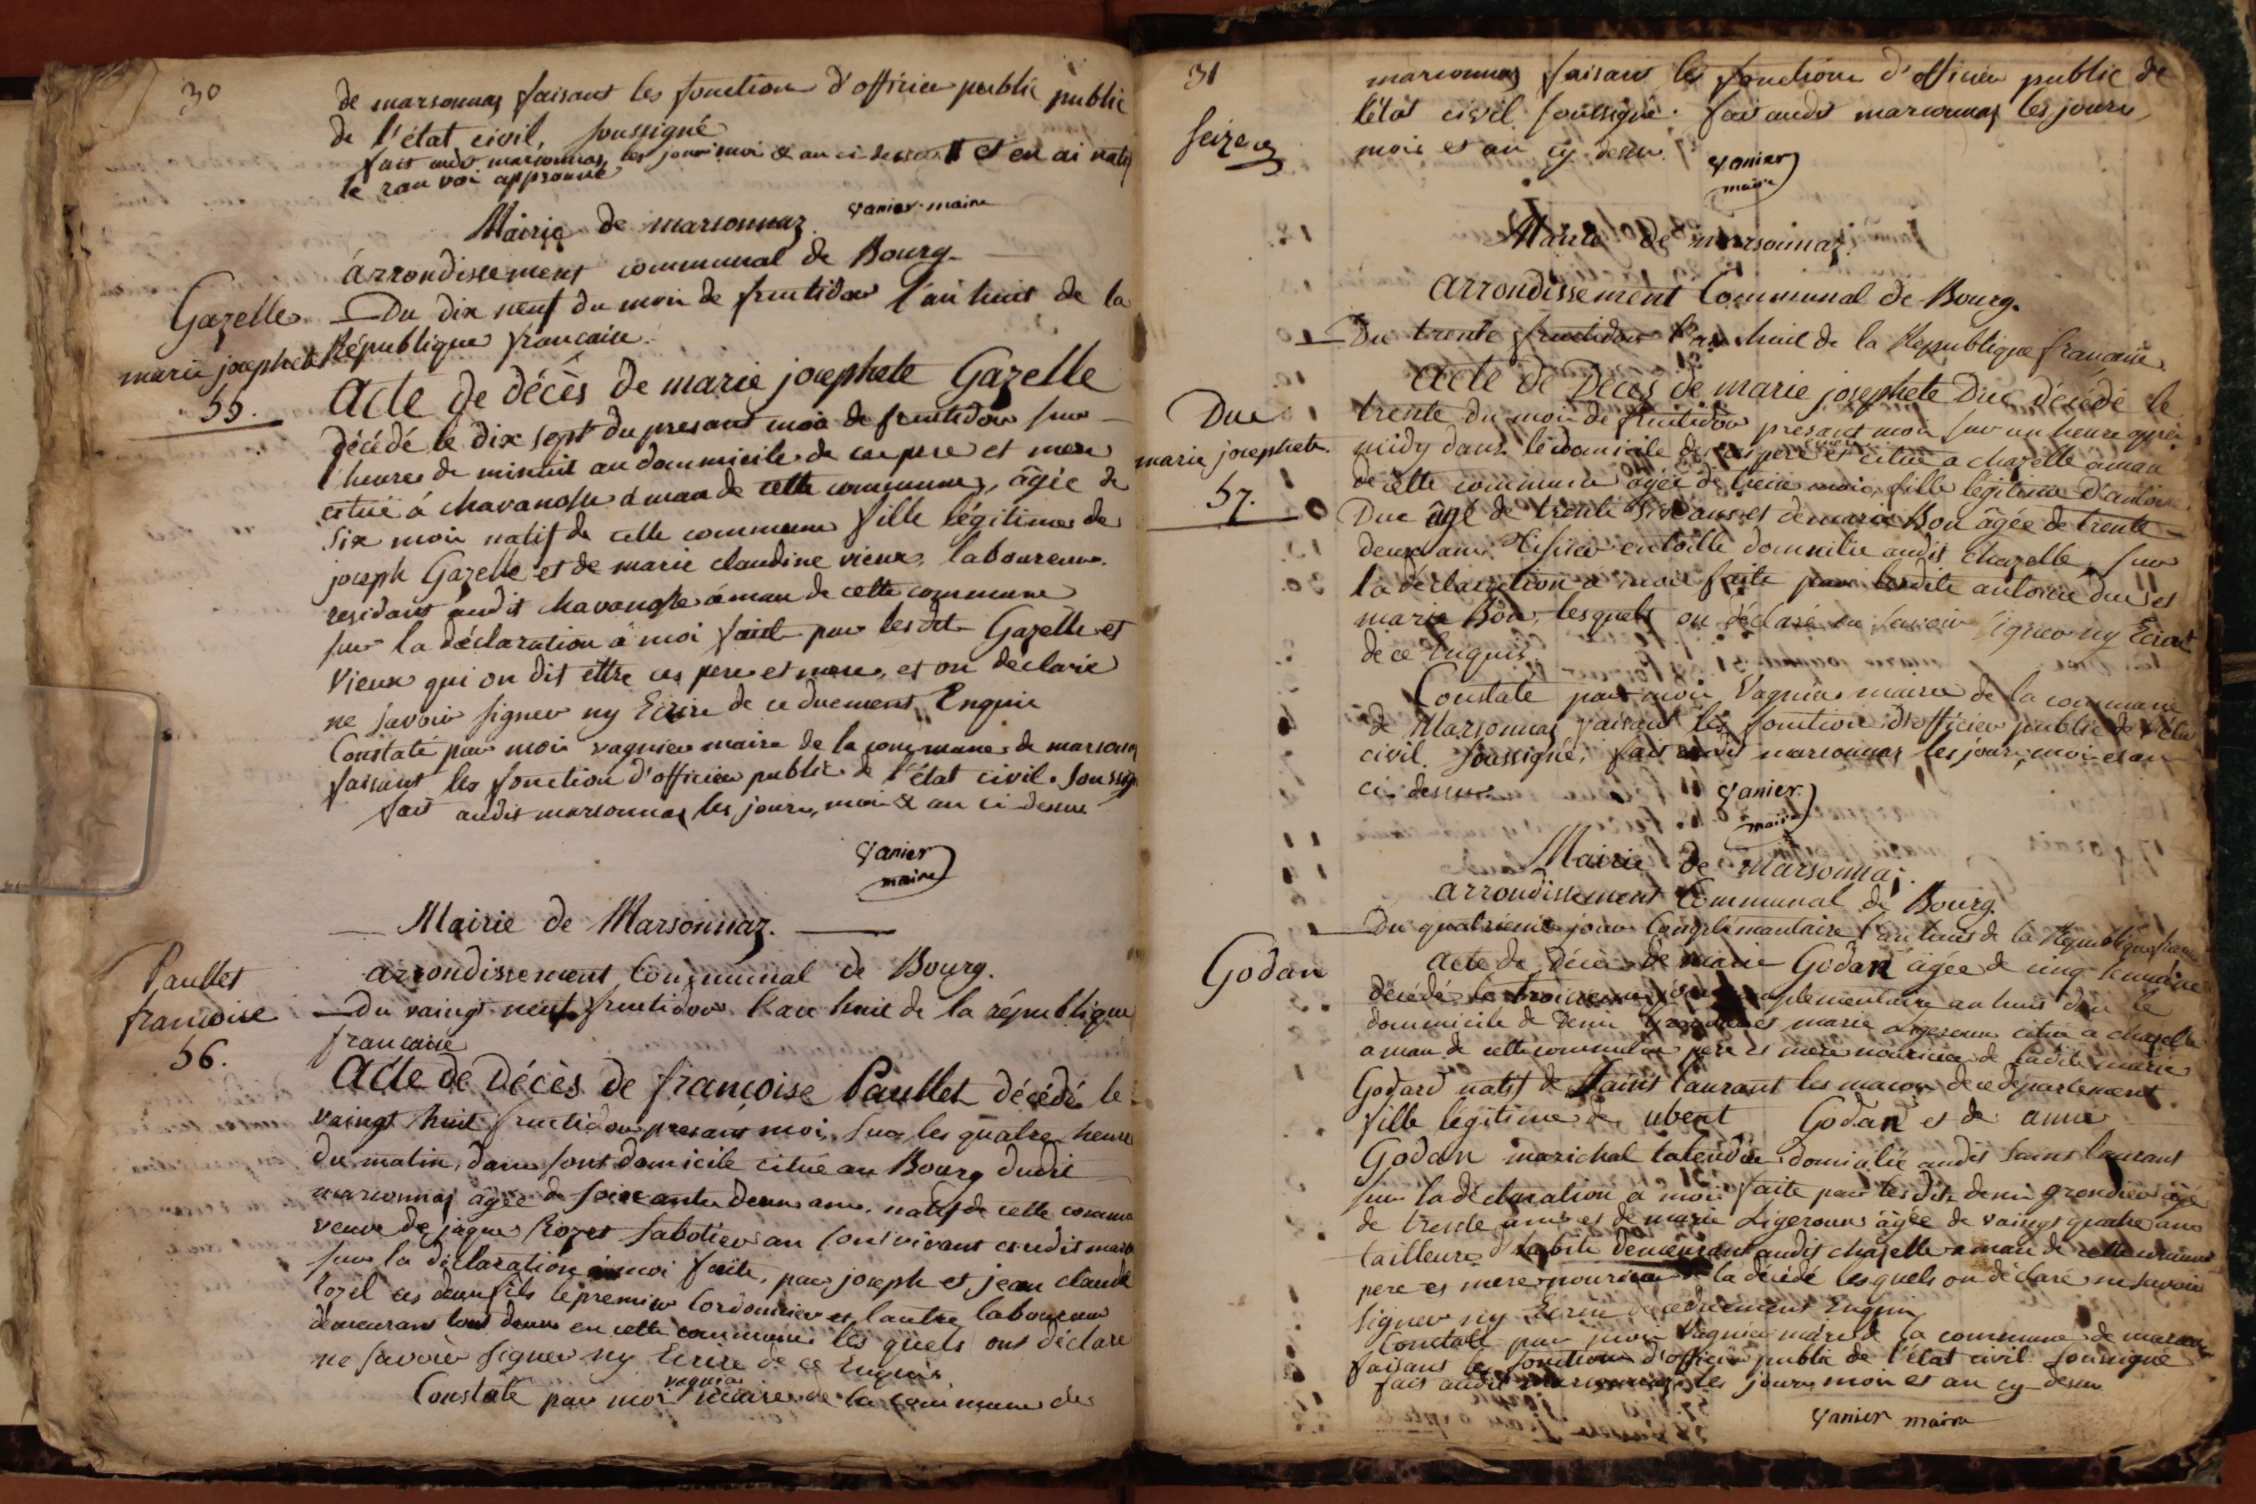 30
de marsonnaz faisant les fonction d'officier public public
de l'état civil, soussigné
fait audit marsonnaz les jour moi & an ci dessus et en ai
le ran voi approuvé
vanier maire
Mairie de marsonnaz
arrondissement communal de Bourg
Gazelle
marie josephete
55.
Du dix neuf du moi de fructidor l'an huit de la
République francaise
Acte de décès de marie josephete Gazelle
décédé le dix sept du presant moi de fructidor sur
heures de minuit au dommicile de ces pere et mere
cituë à chavanosse aman de cette commune, âgée de
six moi natif de cette commune fille légitime de
joseph Gazelle et de marie claudine vieux, laboureur
residant audit chavanosse aman de cette commune
sur la déclaration à moi fait par lesdt Gazelle et
Vieux qui on dit ettre ces pere et mere, et on declaré
ne savoir signer ny Ecrire de ce duement Enquis
Constaté par moi vagnier maire de la commune de marsonaz
faisant les fonction d'officier public de l'état civil. Soussig
fait audit marsonnaz les jours, moi & an ci dessus
vanier
maire
Mairie de Marsonnaz.
arrondissement Communal de Bourg.
Paullet
francoise
56.
Du vaingt neuf fructidor l'an huit de la république
francaise
Acte de Décès de françoise Paullet décédé le
vaingt huit fructidor presant moi, sur les quatre heure
du matin, dans sont domicile cituë au Bourg dudit
marsonnaz âgée de soixante deux ans, natif de cette comme
veuve de jaque Rozet sabotier au sont vivant audit mars
sur la déclaration a moi faite, par joseph et jean claude
rozet ces deux fils le premier Cordonnier et l'autre laboureur
demeurant tout deux en cette commune les quels ont déclaré
ne savoir signer ny Ecrire de ce Enquis
Constaté par moi vagnier maire de la commune de
31
seize
marsonnaz faisant les fonction d'officier public de
l'état civil soussigné. fait audit marsonnaz les jours
mois et an cy dessu
vanier
maire
Mairie de marsonnaz
arrondissement Communal de Bourg.
Du trente fructidor l'an huit de la République francaise
Duc
marie josephete
57.
Acte de Décès de marie josephete Duc décédé le
trente du moi de fructidor presant moi sur un heure après
midy dans le domicile de ces pere et cituë a chazelle aman
de cette commune âgée de treize moi, fille légitime d'antoine
Duc âgé de trente six ans et de marie Bon âgée de trente
deux ans Tisier en toille domicilié audit chazelle, sur
la déclaration à moi faite par lesdits antoine duc et
marie Bon, lesquels on déclaré ne savoir signer ny Ecrire
de ce Enquis
Constaté par moi Vagnier maire de la commune
de Marsonnaz faisant les fonction d'officier public de l'état
civil. Soussigné, fait audit marsonnaz les jour, moi et an
ci dessus
vanier
maire
Mairie de Marsonnaz.
arrondissement Communal de Bourg.
Du quatrieme jour Complémantaire l'an huit de la République
Godan
Acte de Décès de marie Godan âgée de cinq semaine
décédé le troisieme jour complementaire an huit dan le
dommicile de Denis et marie Ligeroun cituë a chazelle
aman de cette commune pere et mere nourice de ladite marie
Godard natif de Saint Laurant les macon de ce département
fille légitime de ubert Godan et de anne
Godan marichal domicilié audit Saint laurant
sur la déclaration a moi faite par lesdits denis grendier âgé
de trente ans et de marie Ligeroun âgée de vaingt quatre ans
tailleurs d'habits demeurant audit chazelle aman de cette commune
pere et mere nourice de la décédé lesquels on déclaré ne savoir
signer ny Ecrire de ce duement Enquis
Constaté par moi Vagnier maire de la commune de marsonnaz
faisant les fonction d'officier public de l'état civil soussigné
fait audit marsonnaz les jour, moi et an cy dessu
vanier maire